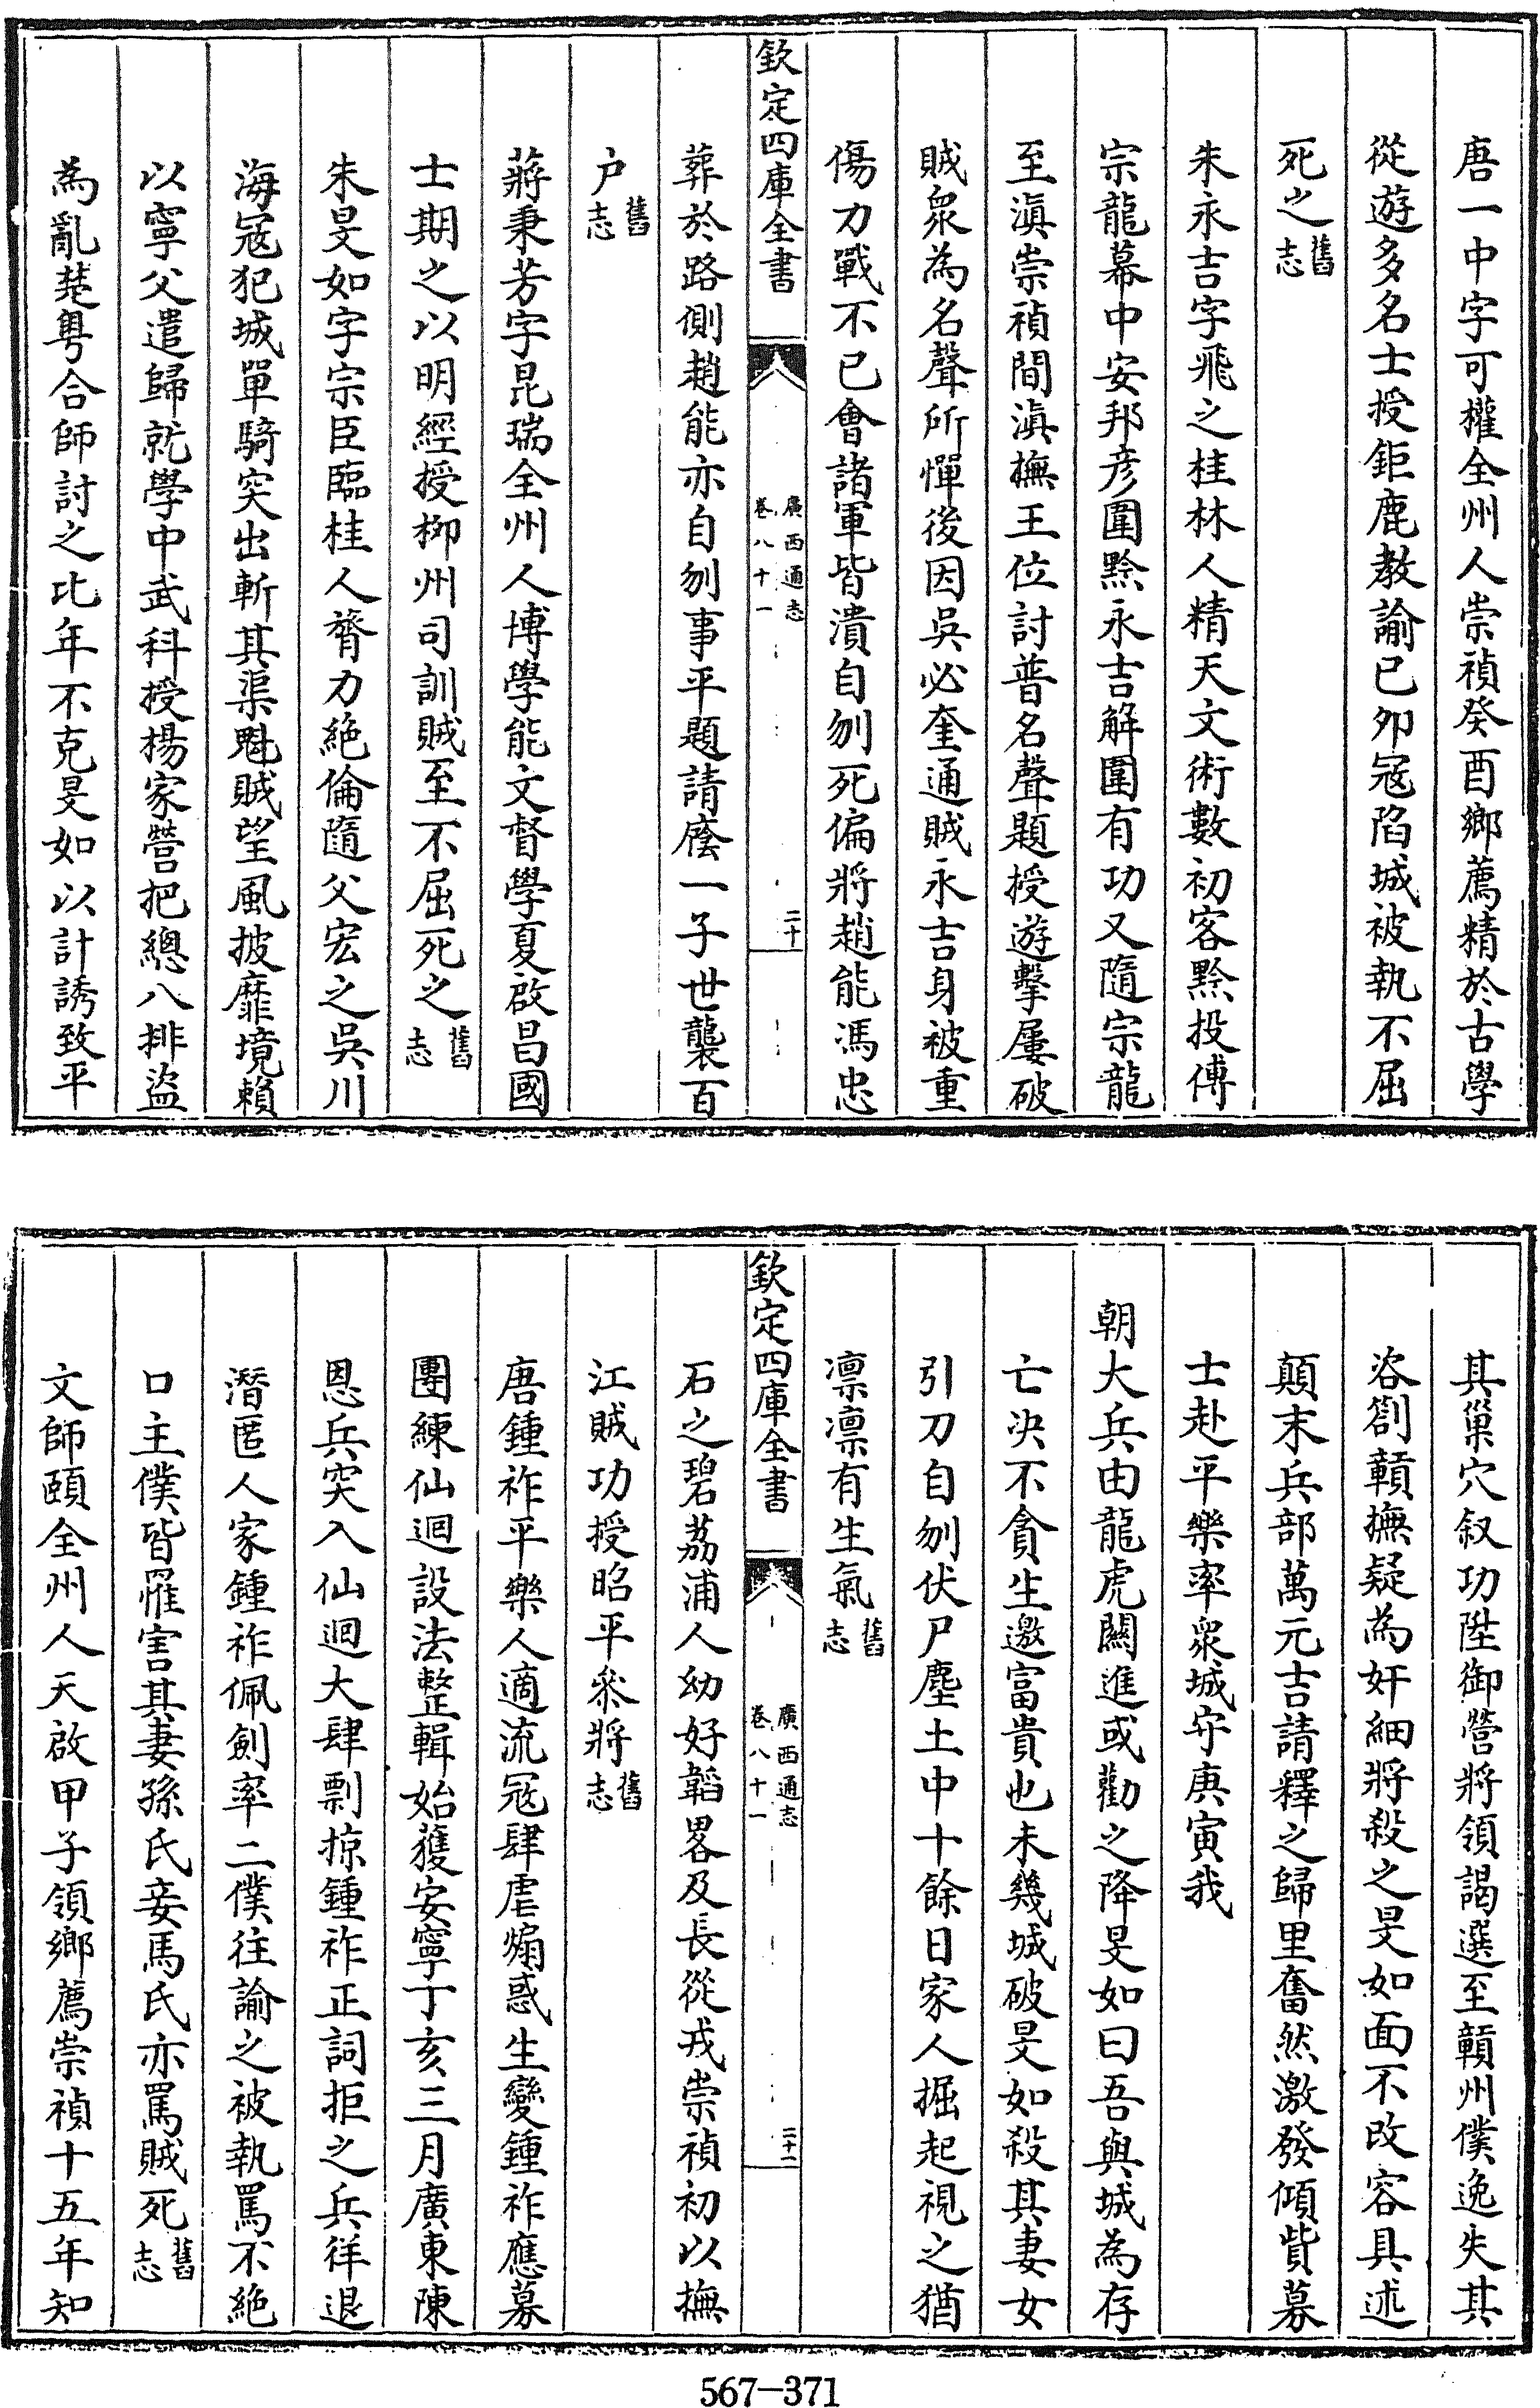 唐一中字可權全州人崇禎癸酉鄉薦精於古學
從遊多名士授鉅鹿教諭已夘冦陷城被執不屈
死之舊志
朱永吉字飛之桂林人精天文術數初客黔投傅
宗龍幕中安邦彦圍黔永吉解圍有功又隨宗龍
至滇崇禎間滇撫王位討普名聲題授遊擊屢破
賊衆為名聲所憚後因吳必奎通賊永吉身被重
傷力戰不已會諸軍皆潰自刎死偏將趙能馮忠
欽定四庫全書
廣西通志
卷八十一
二十
葬於路側趙能亦自刎事平題請廕一子世襲百
户舊志
蔣秉芳字昆瑞全州人博學能文督學夏啟昌國
士期之以明經授栁州司訓賊至不屈死之舊志
朱旻如字宗臣臨桂人膂力絶倫隨父宏之吳川
海冦犯城單騎突出斬其渠魁賊望風披靡境賴
以寧父遣歸就學中武科授楊家營把總八排盜
為亂楚粤合師討之比年不克旻如以計誘致平
其巢穴叙功陞御營將領謁選至贛州僕逸失其
咨劄贛撫疑為奸細將殺之旻如面不改容具述
顛末兵部萬元吉請釋之歸里奮然激發傾貲募
士赴平樂率衆城守庚寅我
朝大兵由龍虎關進或勸之降旻如曰吾與城為存
亡决不貪生邀富貴也未幾城破旻如殺其妻女
引刀自刎伏尸塵土中十餘日家人掘起視之猶
凛凛有生氣舊志
欽定四庫全書
廣西通志
卷八十一
二十一
石之碧荔浦人幼好韜畧及長從戎崇禎初以撫
江賊功授昭平叅將舊志
唐鍾祚平樂人適流冦肆虐煽惑生變鍾祚應募
團練仙迴設法整輯始獲安寧丁亥三月廣東陳
恩兵突入仙迴大肆剽掠鍾祚正詞拒之兵徉退
潛匿人家鍾祚佩劍率二僕往諭之被執罵不絶
口主僕皆罹害其妻孫氏妾馬氏亦罵賊死舊志
文師頤全州人天啟甲子領鄉薦崇禎十五年知
567-371